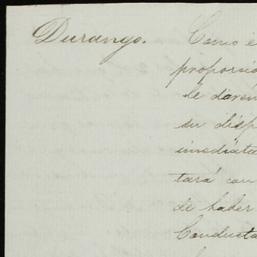 Durango.
Como é
proporsio
le daré
su disp
imediata
tará con
de haber
Conducta